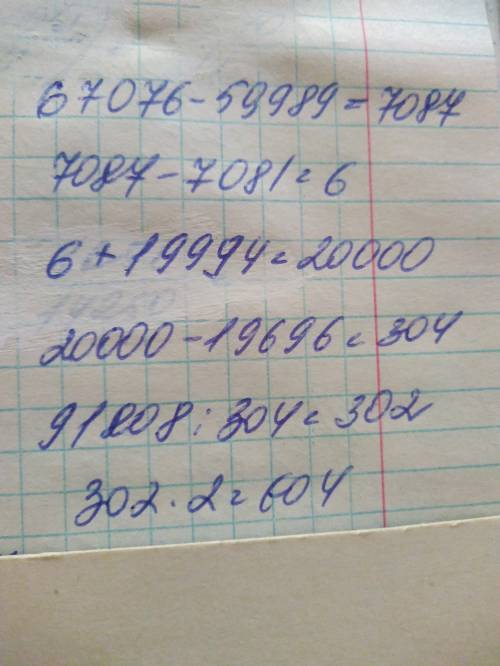 67076-59989=7087
7087-7081=6
6+19994=20000
20000-19696=304
91808:304=302
302·2=604